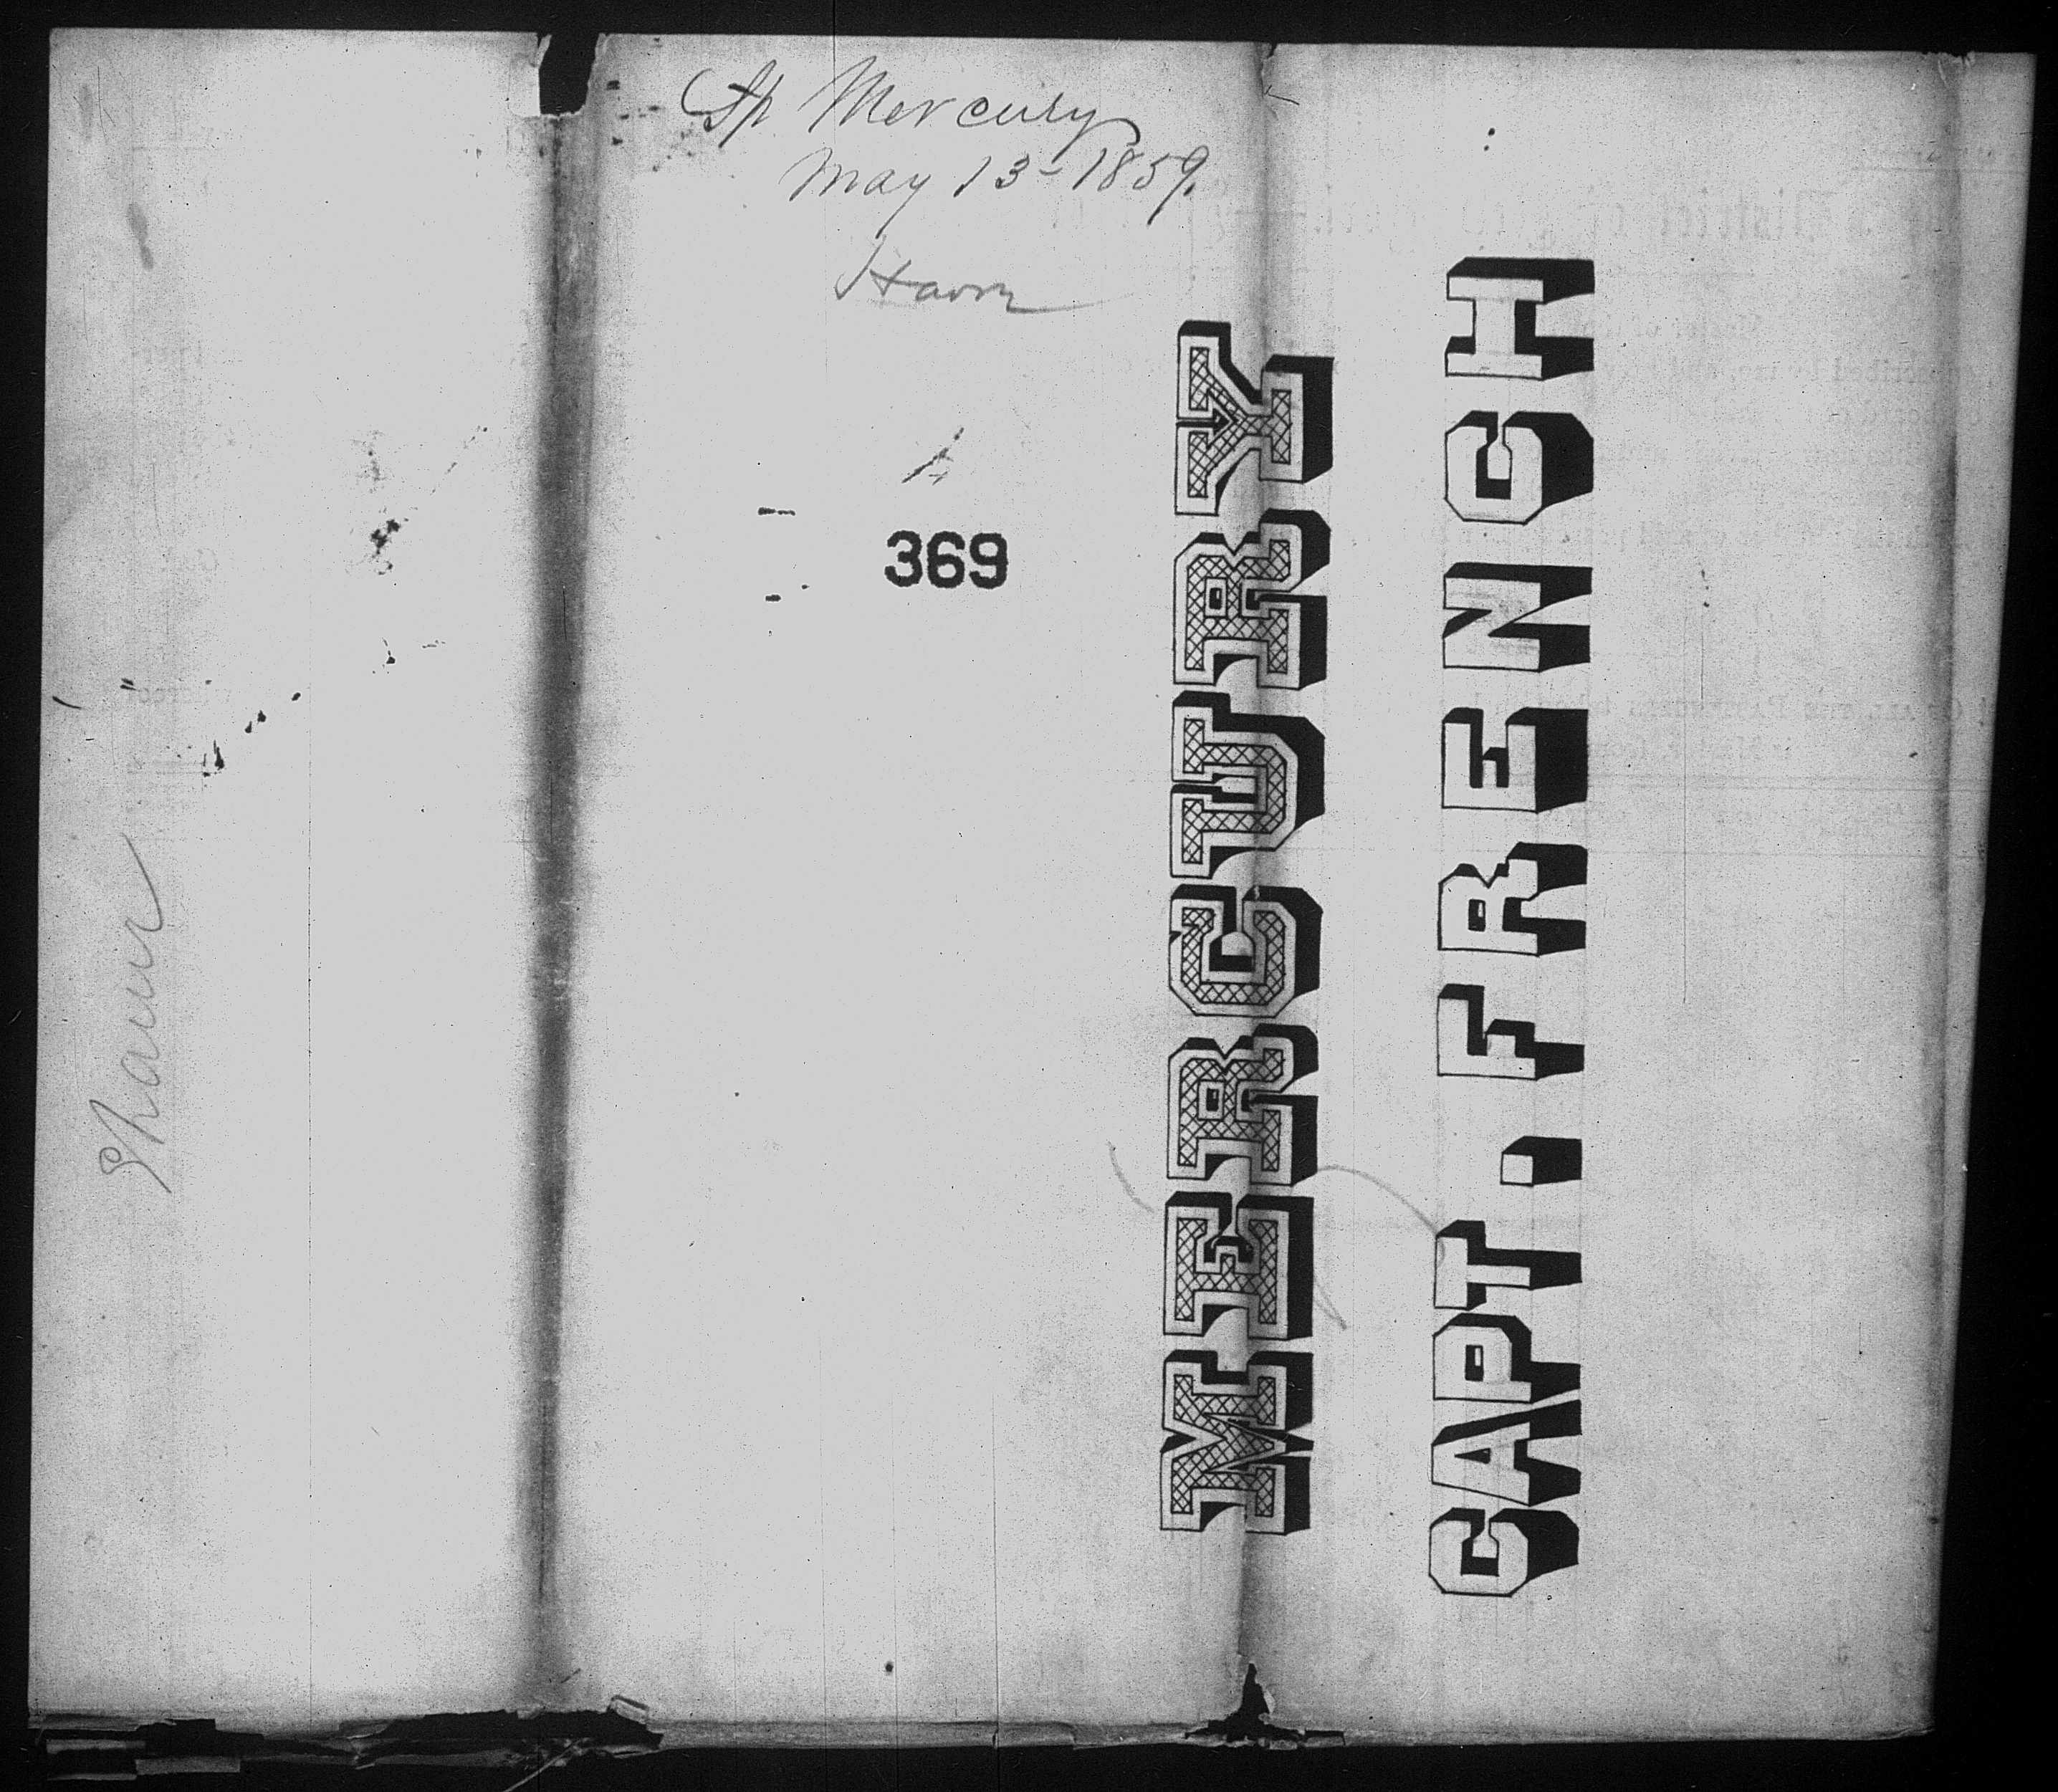 Sp Mercury
May 13-1859.
Havre
369
MERCURY
CAPT. FRENCH